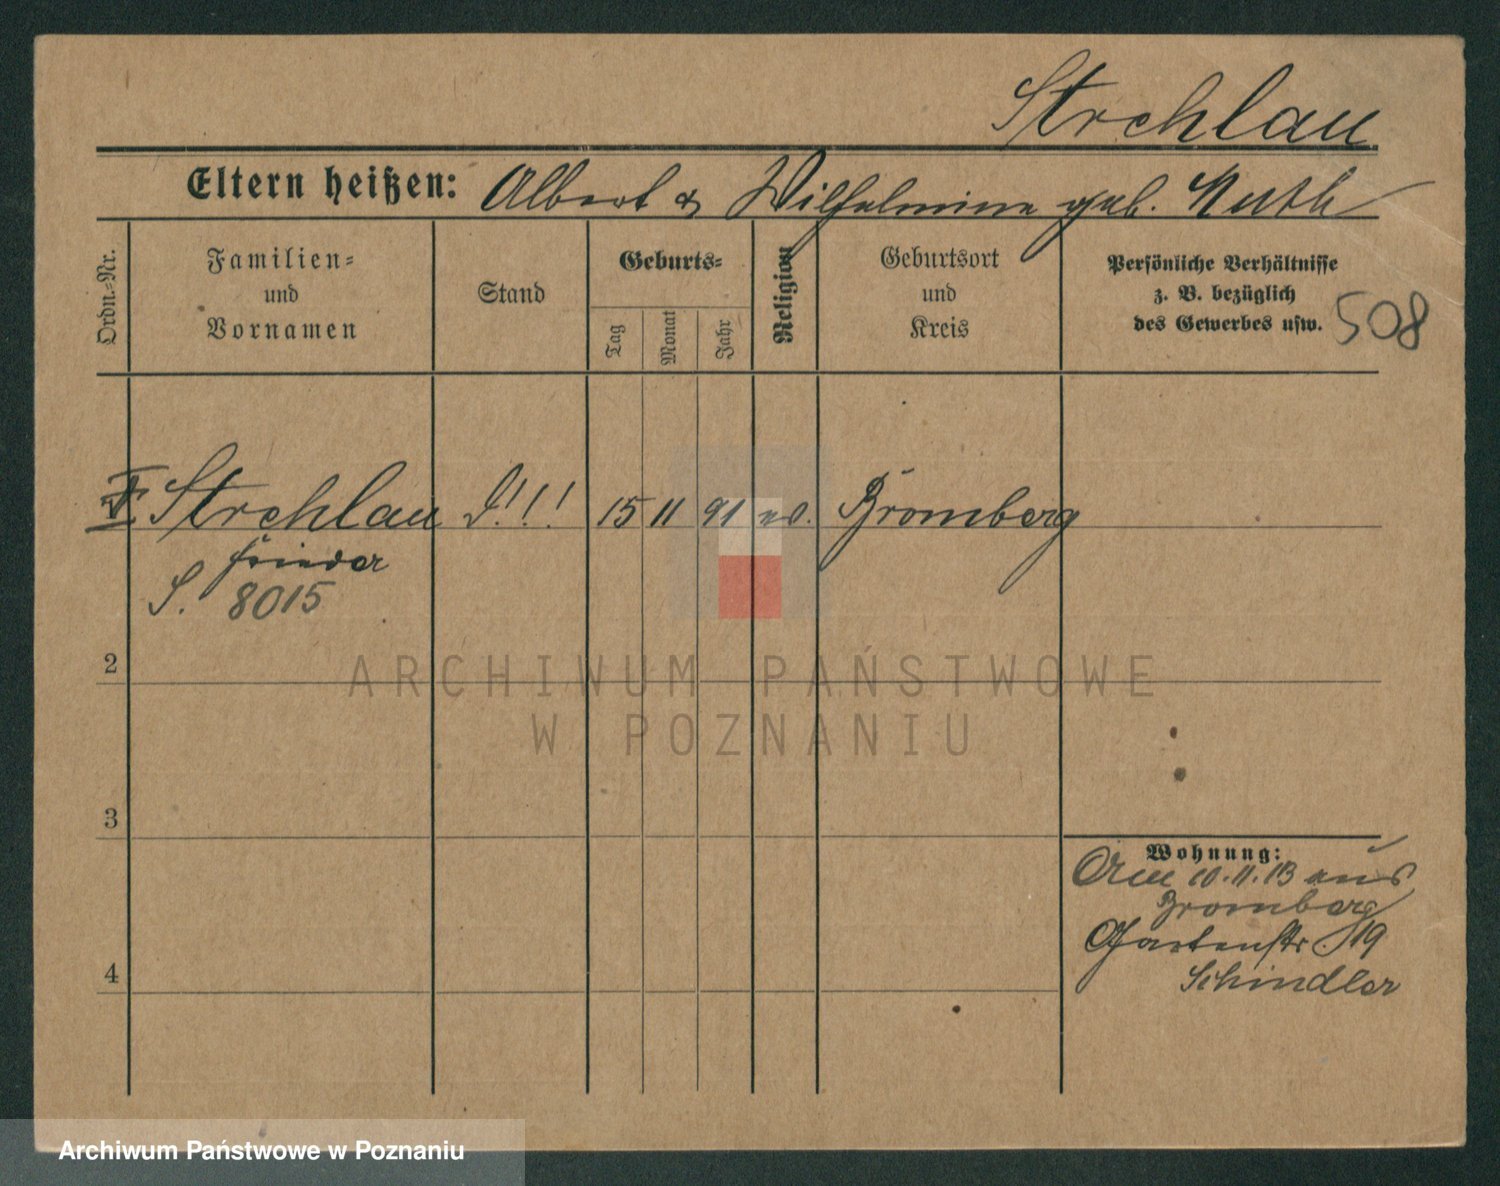 Strehlau
Eltern heißen: Albert & Wilhelmine geb. Muth
Ordn.-Nr.
Familien-
und
Vornamen
Stand
Geburts-
Tag
Monat
Jahr
Religion
Geburtsort
und
Kreis
Persönliche Verhältnisse
z. B. bezüglich
des Gewerbes usw.
508
Strehlau 15 11 91 ev. Bromberg
S. 8015
2
ARCHIWUM PAŃSTWOWE
W POZNANIU
3
Wohnung:
10.11.13 aus
Bromberg
Gartenstr. 19
Schindler
4
Archiwum Państwowe w Poznaniu